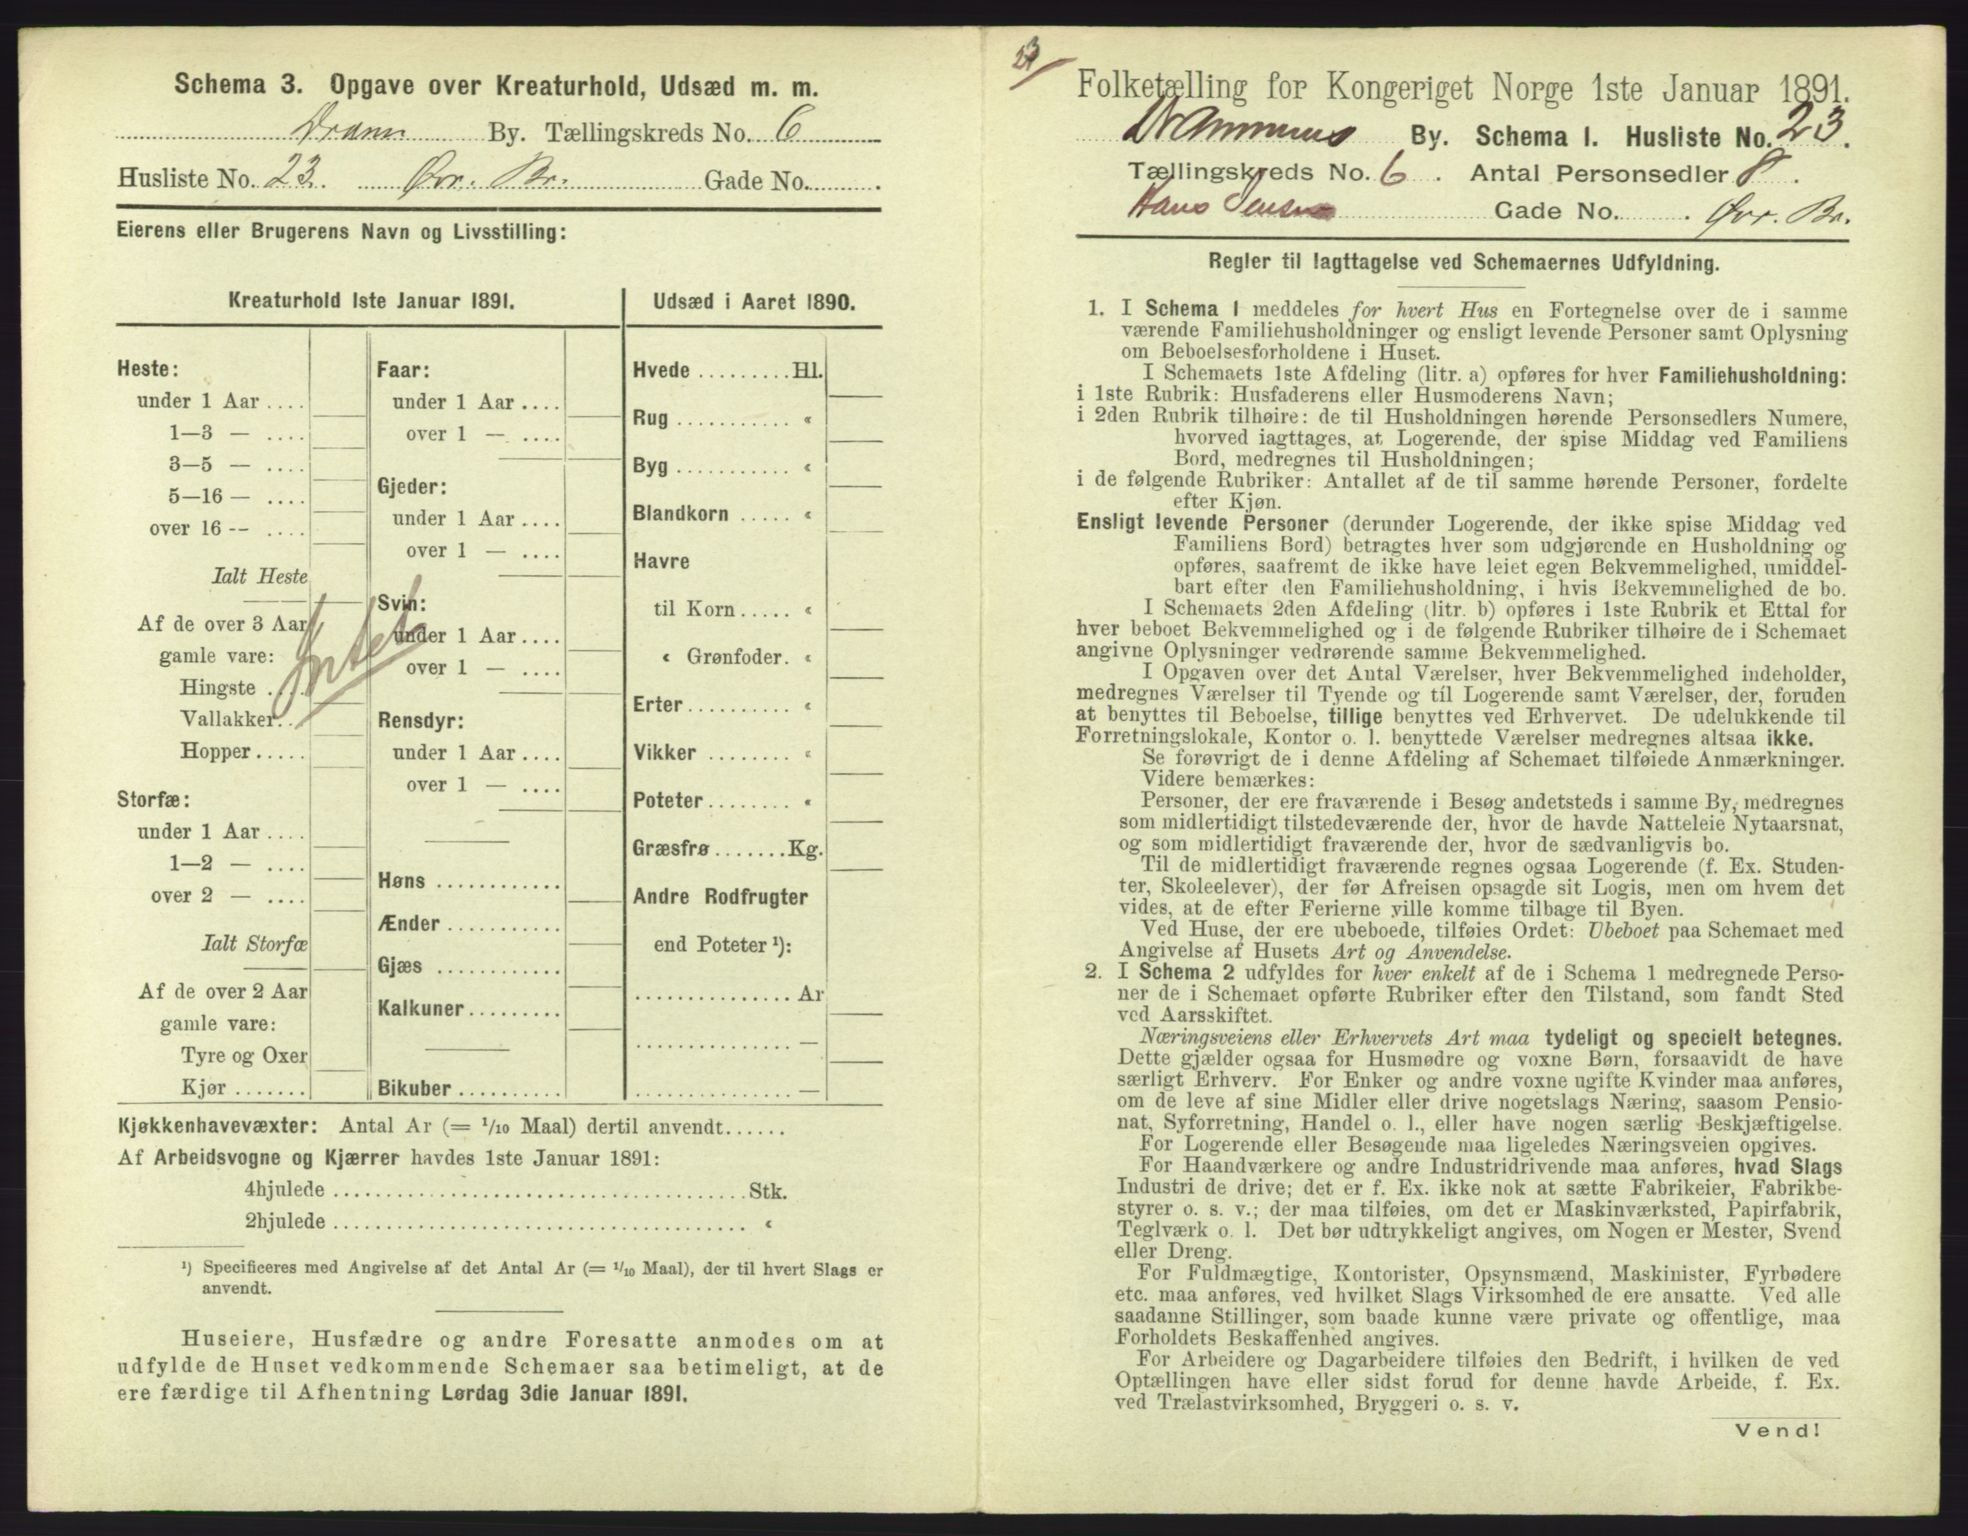 Schema 3. Opgave over Kreaturhold, Udsæd m. m.
Dramm By. Tællingskreds No. 6
Husliste No. 23. Øvr. Br. Gade No. .
Eierens eller Brugerens Navn og Livsstilling:
Kreaturhold 1ste Januar 1891.
Heste:
under 1 Aar ....
1—3 — ....
3—5 — ....
5—16 — ....
over 16 -- ....
Ialt Heste
Af de over 3 Aar
gamle vare:
Hingste ....
Vallakker..
Hopper.....
Intet
Storfæ:
under 1 Aar ....
1—2 — ....
over 2 — ....
Ialt Storfæ
Af de over 2 Aar
gamle vare:
Tyre og Oxer
Kjør.......
Faar:
under 1 Aar ....
over 1 — ....
Gjeder:
under 1 Aar ....
over 1 — ....
Svin:
under 1 Aar ....
over 1 — ....
Rensdyr:
under 1 Aar ....
over 1 — ....
Høns ............
Ænder ...........
Gjæs ............
Kalkuner.........
Bikuber ..........
Udsæd i Aaret 1890.
Hvede .........Hl.
Rug ........... «
Byg ........... «
Blandkorn ..... «
Havre
til Korn ..... «
« Grønfoder. «
Erter.......... «
Vikker ........ «
Poteter........ «
Græsfrø.......Kg.
Andre Rodfrugter
end Poteter ¹):
............... Ar
............... —
............... —
Kjøkkenhavevæxter: Antal Ar (= 1/10 Maal) dertil anvendt......
Af Arbeidsvogne og Kjærrer havdes 1ste Januar 1891:
4hjulede ..................................Stk.
2hjulede .................................. «
¹) Specificeres med Angivelse af det Antal Ar (= 1/10 Maal), der til hvert Slags er
anvendt.
Huseiere, Husfædre og andre Foresatte anmodes om at
udfylde de Huset vedkommende Schemaer saa betimeligt, at de
ere færdige til Afhentning Lørdag 3die Januar 1891.
23
Folketælling for Kongeriget Norge 1ste Januar 1891.
Drammens By. Schema I. Husliste No. 23.
Tællingskreds No. 6 . Antal Personsedler 8 .
Hans Jensens Gade No. . Øvr. Br.
Regler til Iagttagelse ved Schemaernes Udfyldning.
1. I Schema I meddeles for hvert Hus en Fortegnelse over de i samme
værende Familiehusholdninger og ensligt levende Personer samt Oplysning
om Beboelsesforholdene i Huset.
I Schemaets 1ste Afdeling (litr. a) opføres for hver Familiehusholdning:
i 1ste Rubrik: Husfaderens eller Husmoderens Navn;
i 2den Rubrik tilhøire: de til Husholdningen hørende Personsedlers Numere,
hvorved iagttages, at Logerende, der spise Middag ved Familiens
Bord, medregnes til Husholdningen;
i de følgende Rubriker: Antallet af de til samme hørende Personer, fordelte
efter Kjøn.
Ensligt levende Personer (derunder Logerende, der ikke spise Middag ved
Familiens Bord) betragtes hver som udgjørende en Husholdning og
opføres, saafremt de ikke have leiet egen Bekvemmelighed, umiddel-
bart efter den Familiehusholdning, i hvis Bekvemmelighed de bo.
I Schemaets 2den Afdeling (litr. b) opføres i 1ste Rubrik et Ettal for
hver beboet Bekvemmelighed og i de følgende Rubriker tilhøire de i Schemaet
angivne Oplysninger vedrørende samme Bekvemmelighed.
I Opgaven over det Antal Værelser, hver Bekvemmelighed indeholder,
medregnes Værelser til Tyende og til Logerende samt Værelser, der, foruden
at benyttes til Beboelse, tillige benyttes ved Erhvervet. De udelukkende til
Forretningslokale, Kontor o. l. benyttede Værelser medregnes altsaa ikke.
Se forøvrigt de i denne Afdeling af Schemaet tilføiede Anmærkninger.
Videre bemærkes:
Personer, der ere fraværende i Besøg andetsteds i samme By, medregnes
som midlertidigt tilstedeværende der, hvor de havde Natteleie Nytaarsnat,
og som midlertidigt fraværende der, hvor de sædvanligvis bo.
Til de midlertidigt fraværende regnes ogsaa Logerende (f. Ex. Studen-
ter, Skoleelever), der før Afreisen opsagde sit Logis, men om hvem det
vides, at de efter Ferierne ville komme tilbage til Byen.
Ved Huse, der ere ubeboede, tilføies Ordet: Ubeboet paa Schemaet med
Angivelse af Husets Art og Anvendelse.
2. I Schema 2 udfyldes for hver enkelt af de i Schema 1 medregnede Perso-
ner de i Schemaet opførte Rubriker efter den Tilstand, som fandt Sted
ved Aarsskiftet.
Næringsveiens eller Erhvervets Art maa tydeligt og specielt betegnes.
Dette gjælder ogsaa for Husmødre og voxne Børn, forsaavidt de have
særligt Erhverv. For Enker og andre voxne ugifte Kvinder maa anføres,
om de leve af sine Midler eller drive nogetslags Næring, saasom Pensio-
nat, Syforretning, Handel o. l., eller have nogen særlig Beskjæftigelse.
For Logerende eller Besøgende maa ligeledes Næringsveien opgives.
For Haandværkere og andre Industridrivende maa anføres, hvad Slags
Industri de drive; det er f. Ex. ikke nok at sætte Fabrikeier, Fabrikbe-
styrer o. s. v.; der maa tilføies, om det er Maskinværksted, Papirfabrik,
Teglværk o. l. Det bør udtrykkeligt angives, om Nogen er Mester, Svend
eller Dreng.
For Fuldmægtige, Kontorister, Opsynsmænd, Maskinister, Fyrbødere
etc. maa anføres, ved hvilket Slags Virksomhed de ere ansatte. Ved alle
saadanne Stillinger, som baade kunne være private og offentlige, maa
Forholdets Beskaffenhed angives.
For Arbeidere og Dagarbeidere tilføies den Bedrift, i hvilken de ved
Optællingen have eller sidst forud for denne havde Arbeide, f. Ex.
ved Trælastvirksomhed, Bryggeri o. s. v.
Vend!